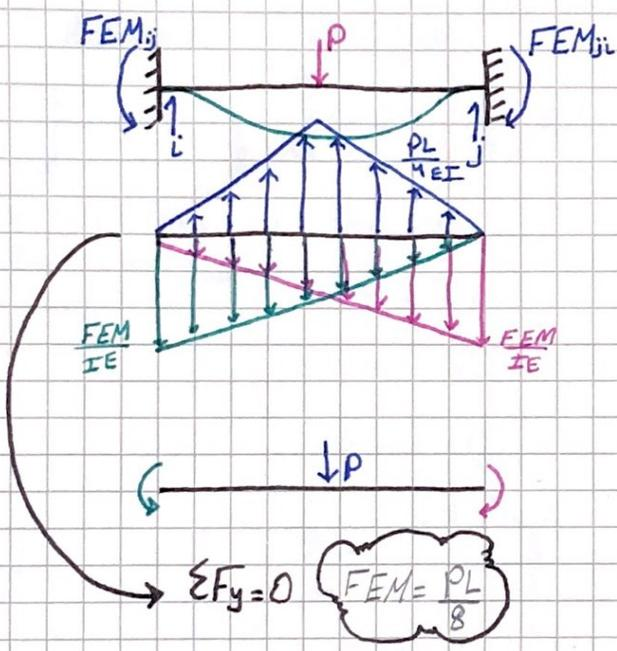 FEMij P FEMji
i j
PL/4EI
FEM/IE FEM/IE
P
ΣFy=0 FEM=PL/8